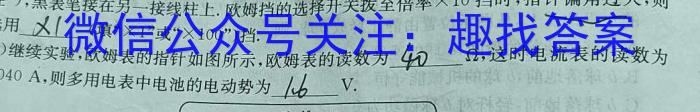 ,黑表笔接在另一接线柱上.欧姆挡的选择开关拨至倍率×10挡时,指针偏角过大,则
用 ×1 (填“×1”或“×100”)挡.
微信公众号关注:趣找答案
)继续实验,欧姆表的指针如图所示,欧姆表的读数为 40 Ω,这时电流表的读数为
040 A,则多用电表中电池的电动势为 1.6 V.